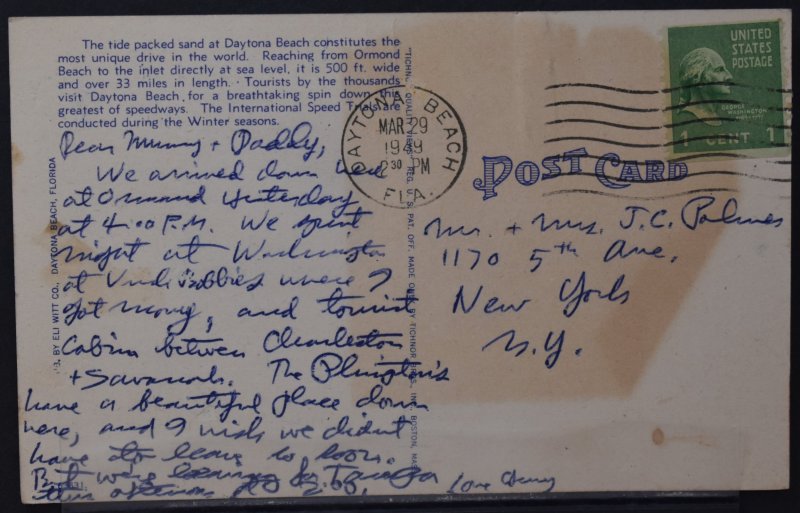 The tide packed sand at Daytona Beach constitutes the
most unique drive in the world. Reaching from Ormond
Beach to the inlet directly at sea level, it is 500 ft. wide
and over 33 miles in length. Tourists by the thousands
visit Daytona Beach for a breathtaking spin down this
greatest of speedways. The International Speed Trials are
conducted during the Winter seasons.
Dear Mummy + Daddy,
We arrived down here
at Ormond yesterday
at 4:00 P.M. We spent
night at Washington
at Uncle Bobbies where I
got money, and tourist
cabin between Charleston
+ Savanah. The
have a beautiful place down
here, and I wish we didnt
have to leave so soon.
But we're leaving for
this afternoon at
Love
PUB. BY ELI WITT CO., DAYTONA BEACH, FLORIDA
TICHNOR QUALITY VIEWS REG. U. S. PAT. OFF. MADE ONLY BY TICHNOR BROS., INC., BOSTON, MASS.
DAYTONA BEACH
MAR 29
1949
2 30 PM
FLA.
UNITED
STATES
POSTAGE
GEORGE WASHINGTON
1 CENT 1
POST CARD
Mr. + Mrs. J.C. Palmer
1170 5th Ave.
New York
N.Y.